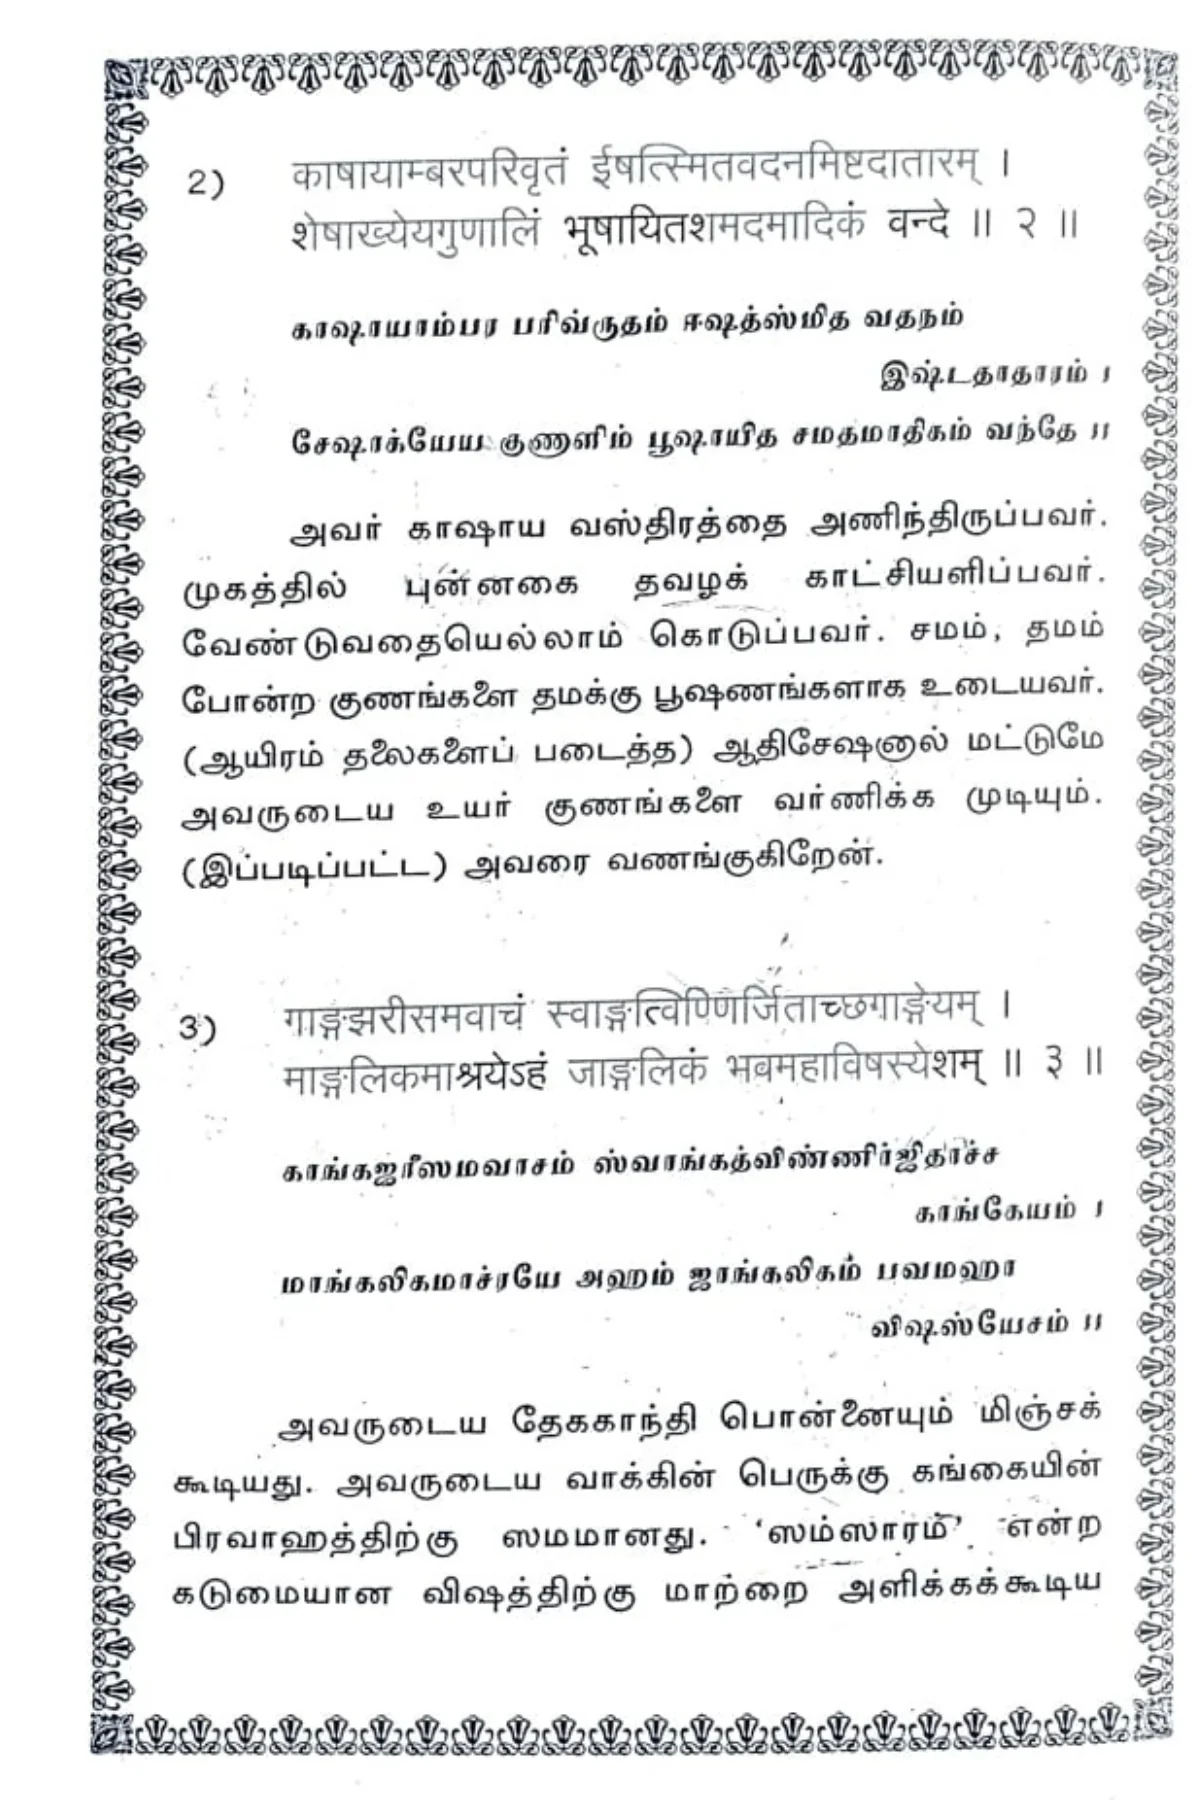 2) काषायाम्बरपरिवृतं ईषत्स्मितवदनमिष्टदातारम् ।
शेषाख्येयगुणालिं भूषायितशमदमादिकं वन्दे ॥ २ ॥
காஷாயாம்பர பரிவ்ருதம் ஈஷத்ஸ்மித வதநம்
இஷ்டதாதாரம் ।
சேஷாக்யேய குணாளிம் பூஷாயித சமதமாதிகம் வந்தே ॥
அவர் காஷாய வஸ்திரத்தை அணிந்திருப்பவர்.
முகத்தில் புன்னகை தவழக் காட்சியளிப்பவர்.
வேண்டுவதையெல்லாம் கொடுப்பவர். சமம், தமம்
போன்ற குணங்களை தமக்கு பூஷணங்களாக உடையவர்.
(ஆயிரம் தலைகளைப் படைத்த) ஆதிசேஷனால் மட்டுமே
அவருடைய உயர் குணங்களை வர்ணிக்க முடியும்.
(இப்படிப்பட்ட) அவரை வணங்குகிறேன்.
3) गाङ्गझरीसमवाचं स्वाङ्गत्विण्णिर्जिताच्छगाङ्गेयम् ।
माङ्गलिकमाश्रयेऽहं जाङ्गलिकं भवमहाविषस्येशम् ॥ ३ ॥
காங்கஜரீஸமவாசம் ஸ்வாங்கத்விண்ணிர்ஜிதாச்ச
காங்கேயம் ।
மாங்கலிகமாச்ரயே அஹம் ஜாங்கலிகம் பவமஹா
விஷஸ்யேசம் ॥
அவருடைய தேககாந்தி பொன்னையும் மிஞ்சக்
கூடியது. அவருடைய வாக்கின் பெருக்கு கங்கையின்
பிரவாஹத்திற்கு ஸமமானது. ‘ஸம்ஸாரம்’ என்ற
கடுமையான விஷத்திற்கு மாற்றை அளிக்கக்கூடிய